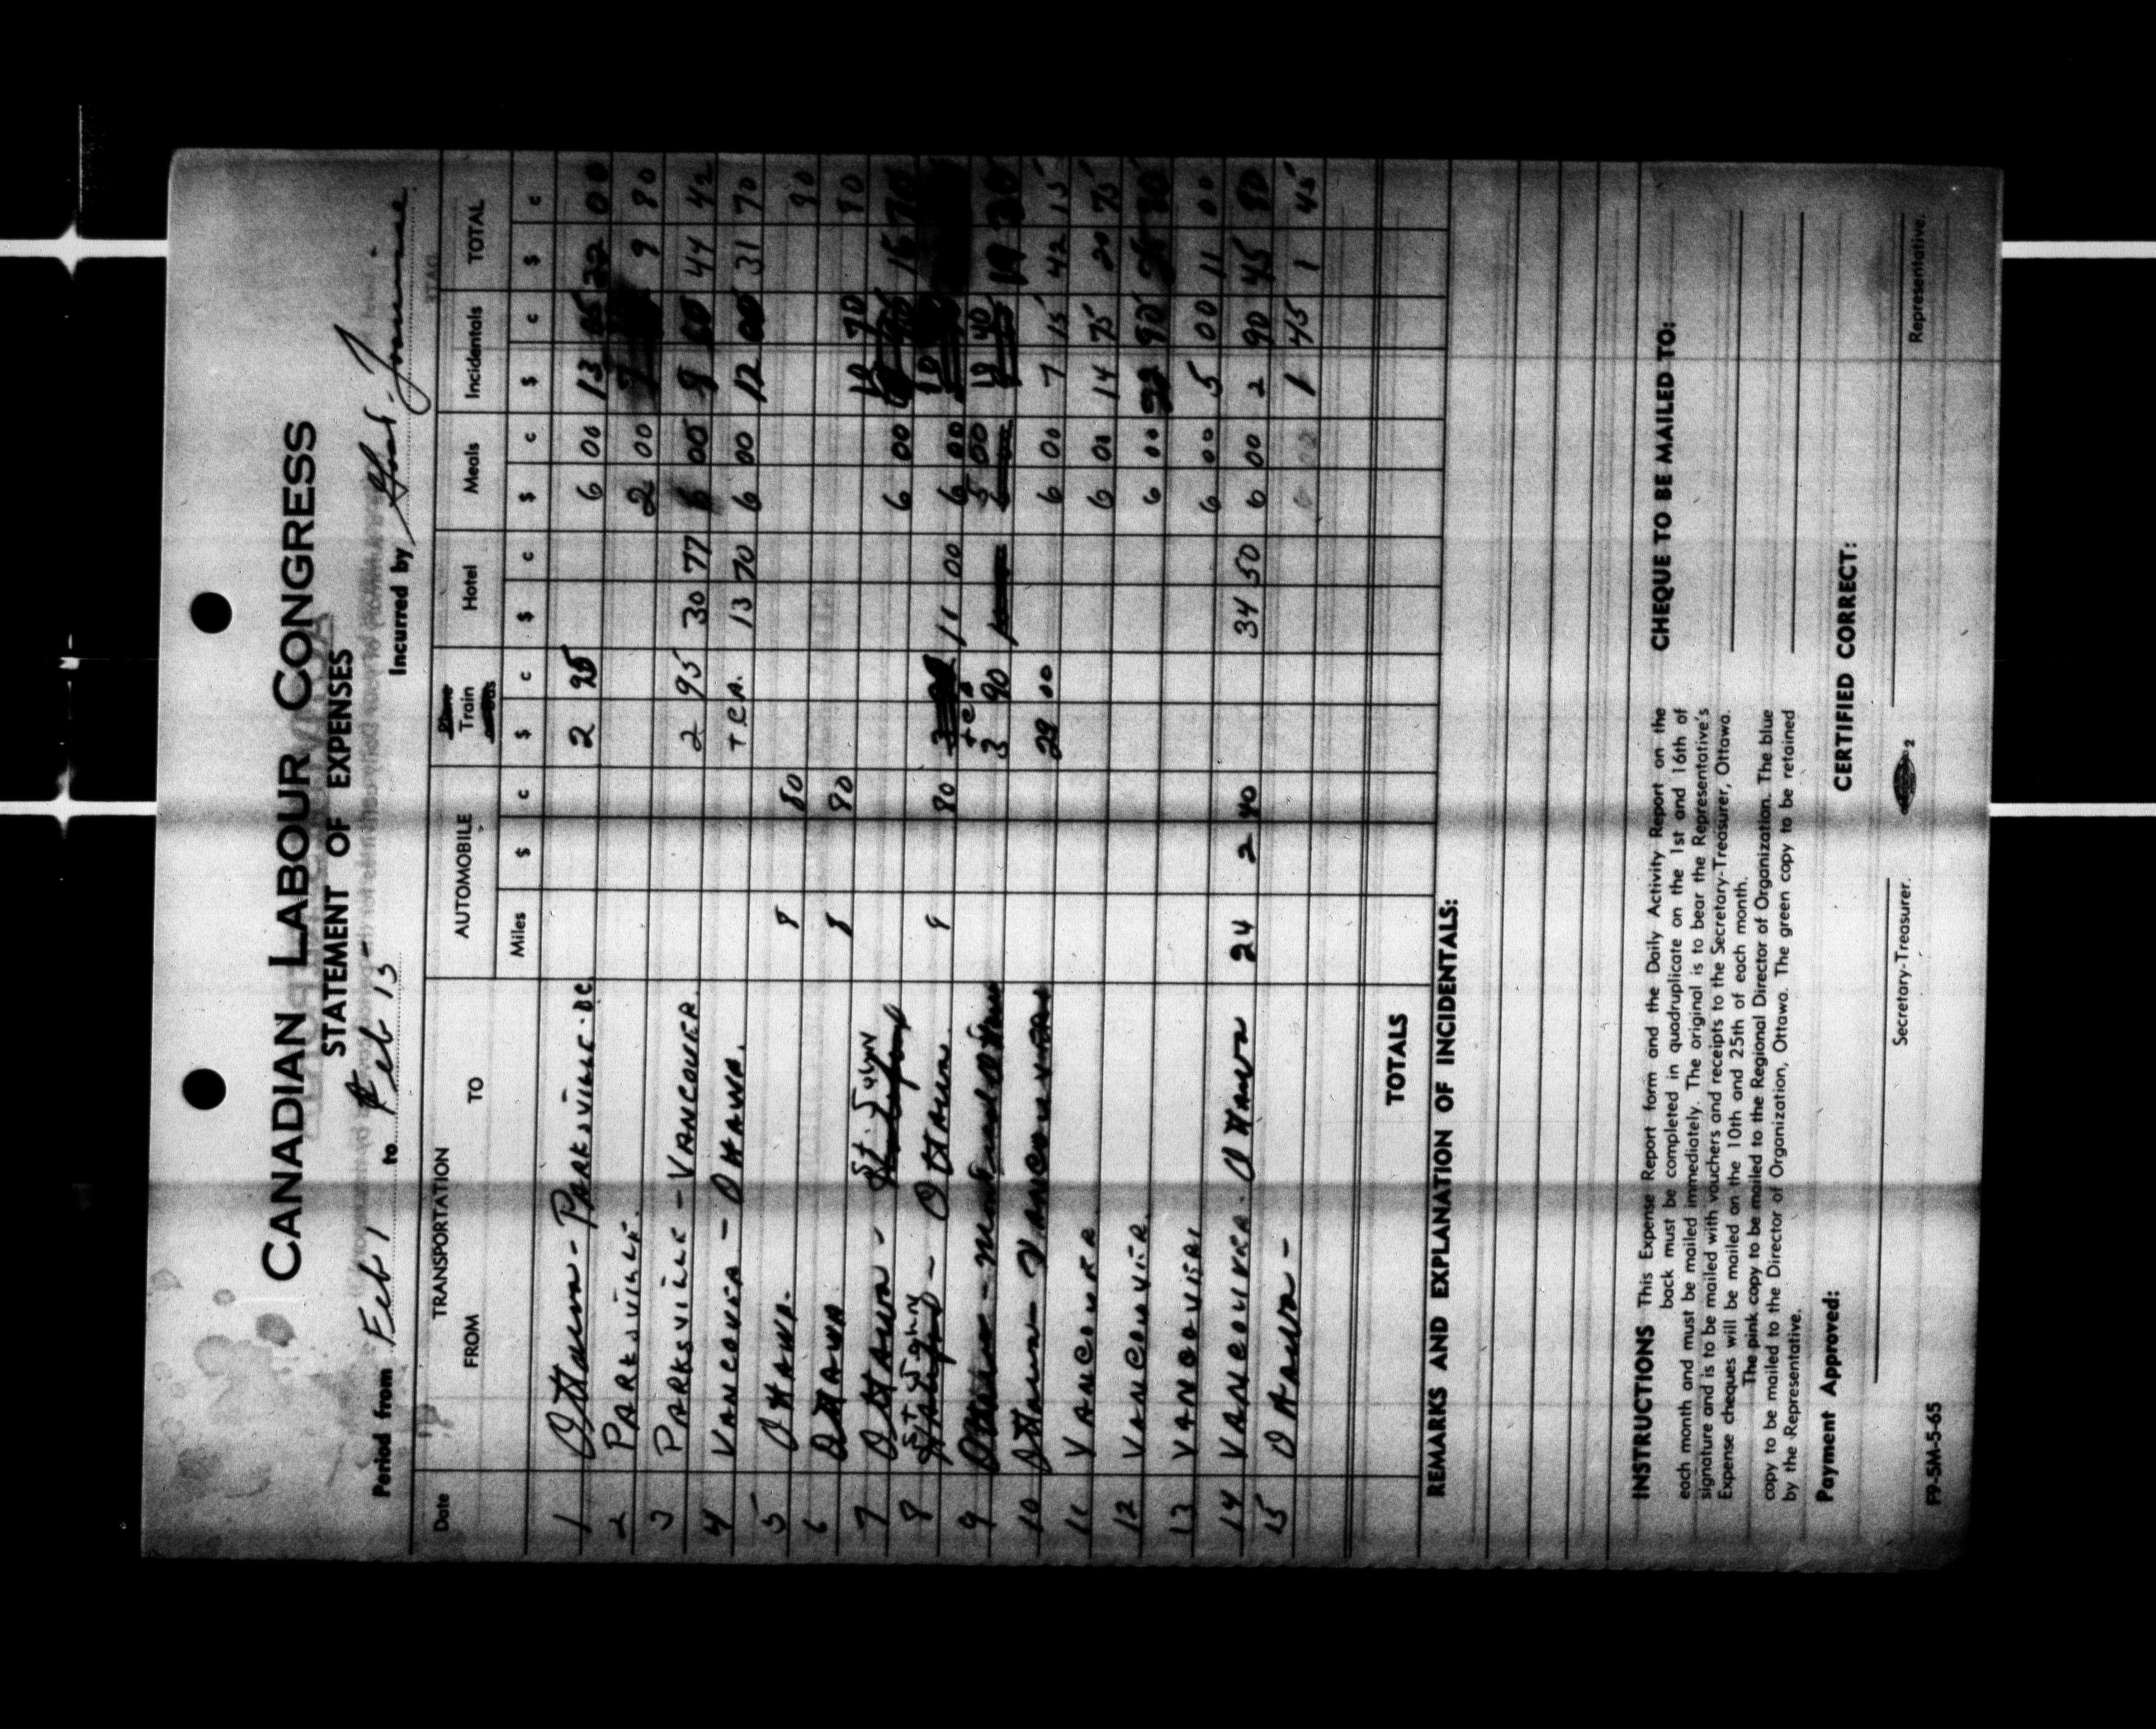 CANADIAN LABOUR CONGRESS
STATEMENT OF EXPENSES
Period from Feb 1 to Feb 15 - Incurred by
Date TRANSPORTATION AUTOMOBILE Train Hotel Meals Incidentals TOTAL
FROM TO Miles $ c $ c $ c $ c $ c $ c
1 Ottawa - Parksville. BC. 2 95 6 00 13 05 22 00
2 PARKSVILLE. 2 00 7 9 80
3 PARKSVILLE - VANCOUVER. 2 95 30 77 6 00 44 42
4 VANCOUVER - OTTAWA. T.C.A. 13 70 6 00 12 00 31 70
5 OTTAWA. 8 80 80
6 OTTAWA 8 80 80
7 OTTAWA - St. John 6 00 10 70 16 70
8 St John - OTTAWA. 8 80 TCA 11 00 6 00
9 3 90 5 00 10 40 19 30
10 Ottawa - VANCOUVER 29 00 6 00 7 15 42 15
11 VANCOUVER 6 00 14 75 20 75
12 VANCOUVER. 6 00
13 VANCOUVER 6 00 5 00 11 00
14 VANCOUVER. OTTAWA 24 2 40 34 50 6 00 2 90 45 80
15 OTTAWA - 1 45 1 45
TOTALS
REMARKS AND EXPLANATION OF INCIDENTALS:
INSTRUCTIONS This Expense Report form and the Daily Activity Report on the
back must be completed in quadruplicate on the 1st and 16th of
each month and must be mailed immediately. The original is to bear the Representative's
signature and is to be mailed with vouchers and receipts to the Secretary-Treasurer, Ottawa.
Expense cheques will be mailed on the 10th and 25th of each month.
The pink copy to be mailed to the Regional Director of Organization. The blue
copy to be mailed to the Director of Organization, Ottawa. The green copy to be retained
by the Representative.
CHEQUE TO BE MAILED TO:
Payment Approved:
CERTIFIED CORRECT:
Secretary-Treasurer.
Representative.
F9-5M-5-65
2